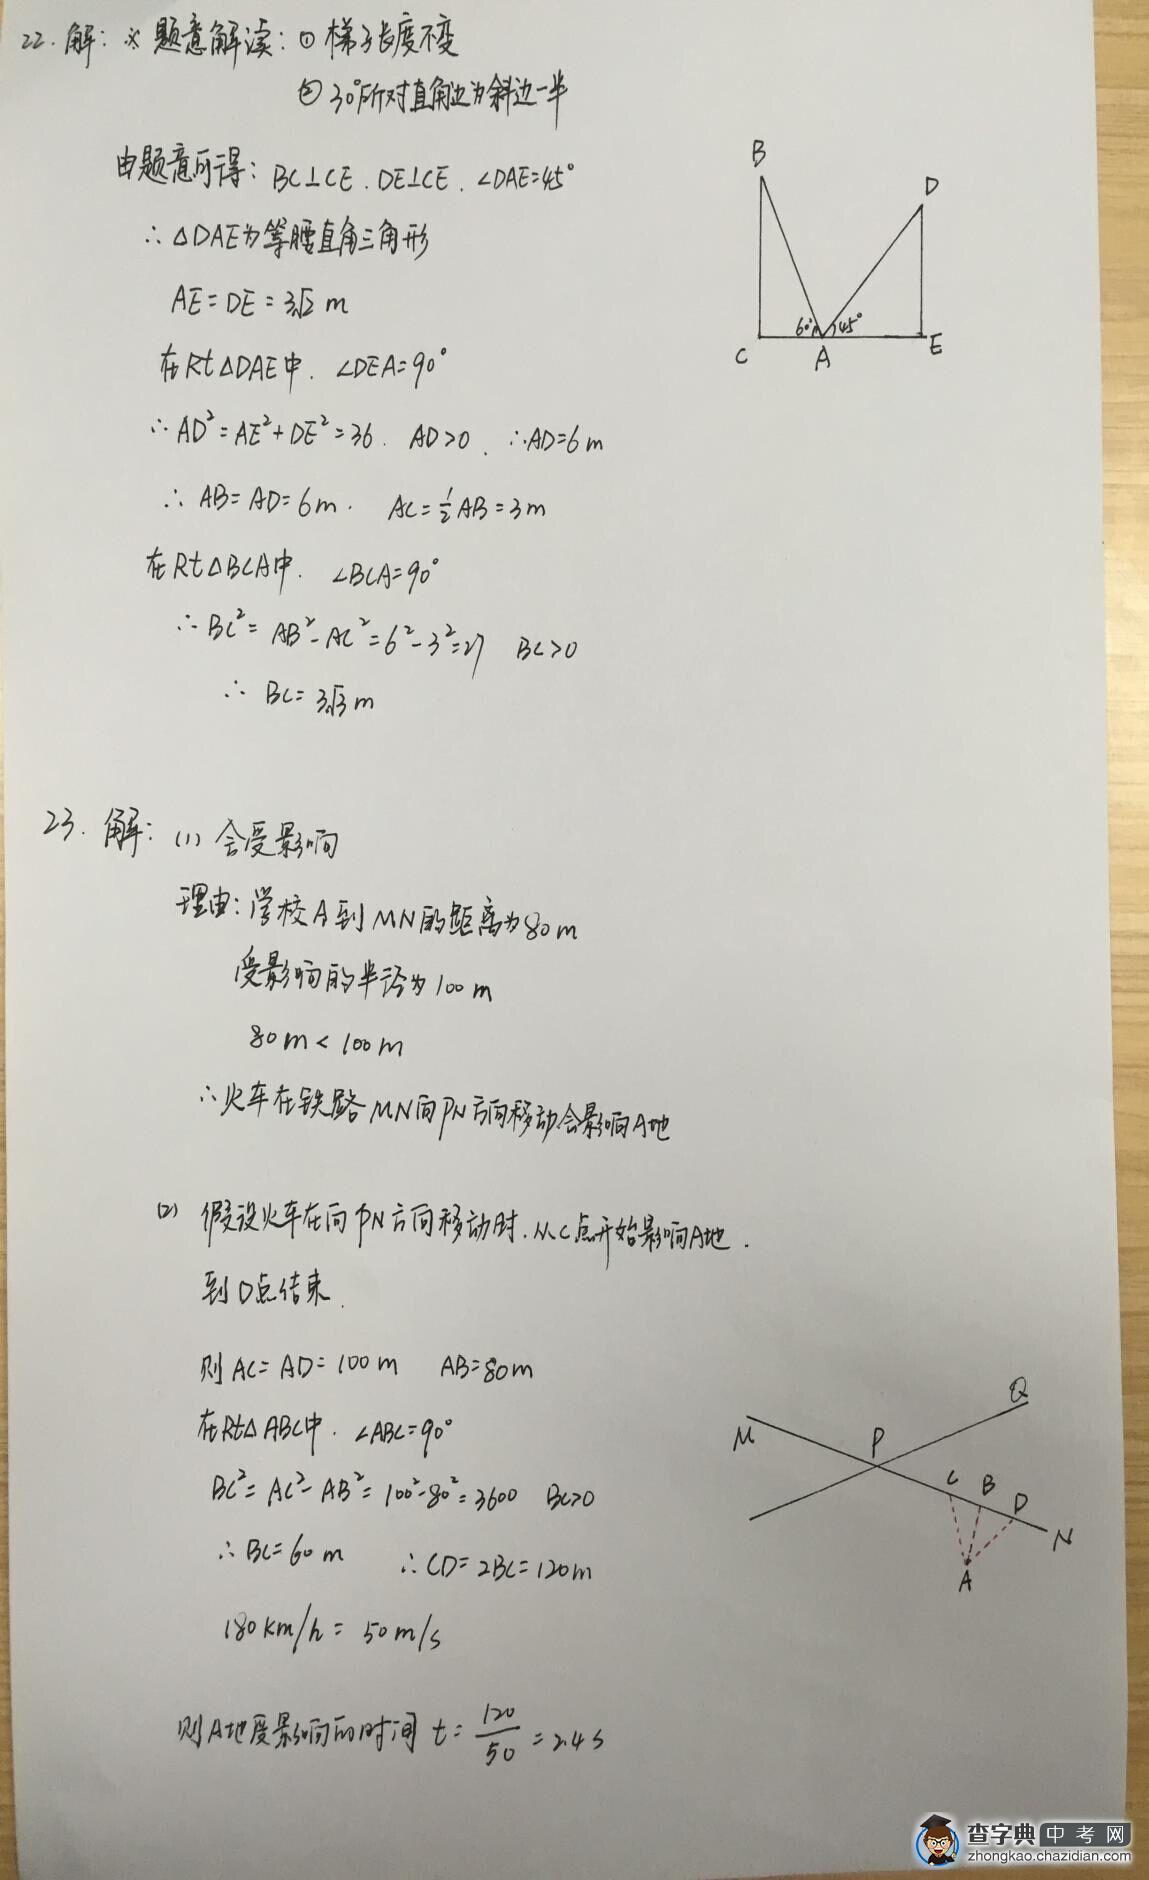 22. 解: ※ 题意解读: ① 梯子长度不变
② 30°所对直角边为斜边一半
由题意可得: BC⊥CE. DE⊥CE. ∠DAE=45°
∴ △DAE为等腰直角三角形
AE=DE=3√2 m
在Rt△DAE中. ∠DEA=90°
∴ AD²=AE²+DE²=36. AD>0. ∴AD=6m
∴ AB=AD=6m. AC=½AB=3m
在Rt△BCA中. ∠BCA=90°
∴ BC²=AB²-AC²=6²-3²=27 BC>0
∴ BC=3√3 m
B
D
60°
45°
C
A
E
23. 解: (1) 会受影响
理由: 学校A到MN的距离为80m
受影响的半径为100m
80m<100m
∴火车在铁路MN向PN方向移动会影响A地
(2) 假设火车在向PN方向移动时. 从C点开始影响A地.
到D点结束.
则AC=AD=100m AB=80m
在Rt△ABC中. ∠ABC=90°
BC²=AC²-AB²=100²-80²=3600 BC>0
∴BC=60m ∴CD=2BC=120m
180km/h=50m/s
则A地受影响的时间 t=120/50=2.4s
Q
M
P
C
B
D
N
A
查字典中考网
zhongkao.chazidian.com